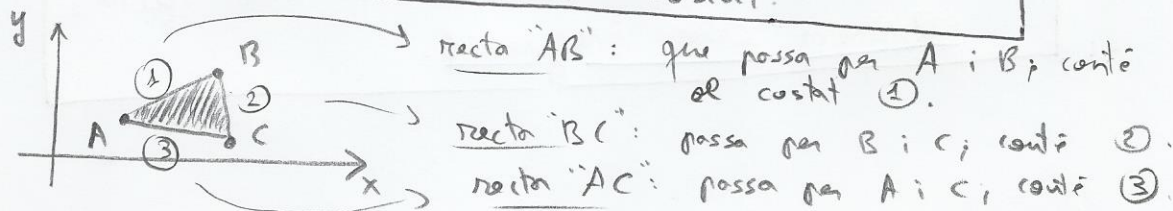 y
recta "AB": que passa per A i B; conté
el costat ①.
recta "BC": passa per B i C; conté ②.
recta "AC": passa per A i C, conté ③.
① B
②
A C
③
x